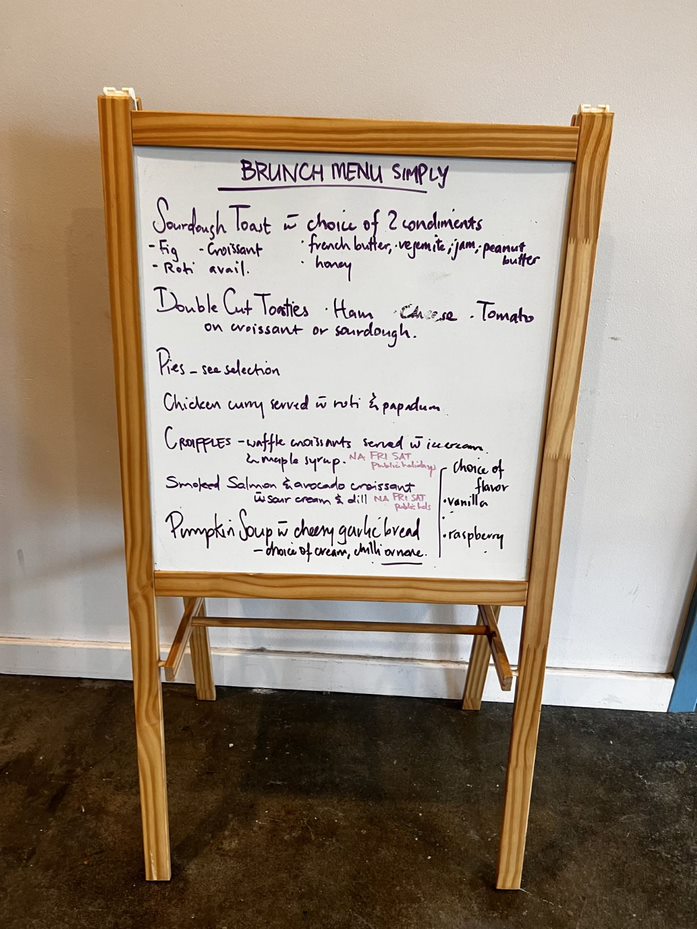 BRUNCH MENU SIMPLY
Sourdough Toast w̄ choice of 2 condiments
- Fig - Croissant · french butter, · vegemite, · jam, · peanut butter
- Roti avail. · honey
Double Cut Toasties · Ham · Cheese · Tomato
on croissant or sourdough.
Pies - see selection
Chicken curry served w̄ roti & papadum
CROIFFLES - waffle croissants served w̄ icecream
& maple syrup. NA FRI SAT
public holidays
choice of
flavor
· vanilla
· raspberry
Smoked Salmon & avocado croissant
w̄ sour cream & dill NA FRI SAT
public hols
Pumpkin Soup w̄ cheesy garlic bread
- choice of cream, chilli or none.